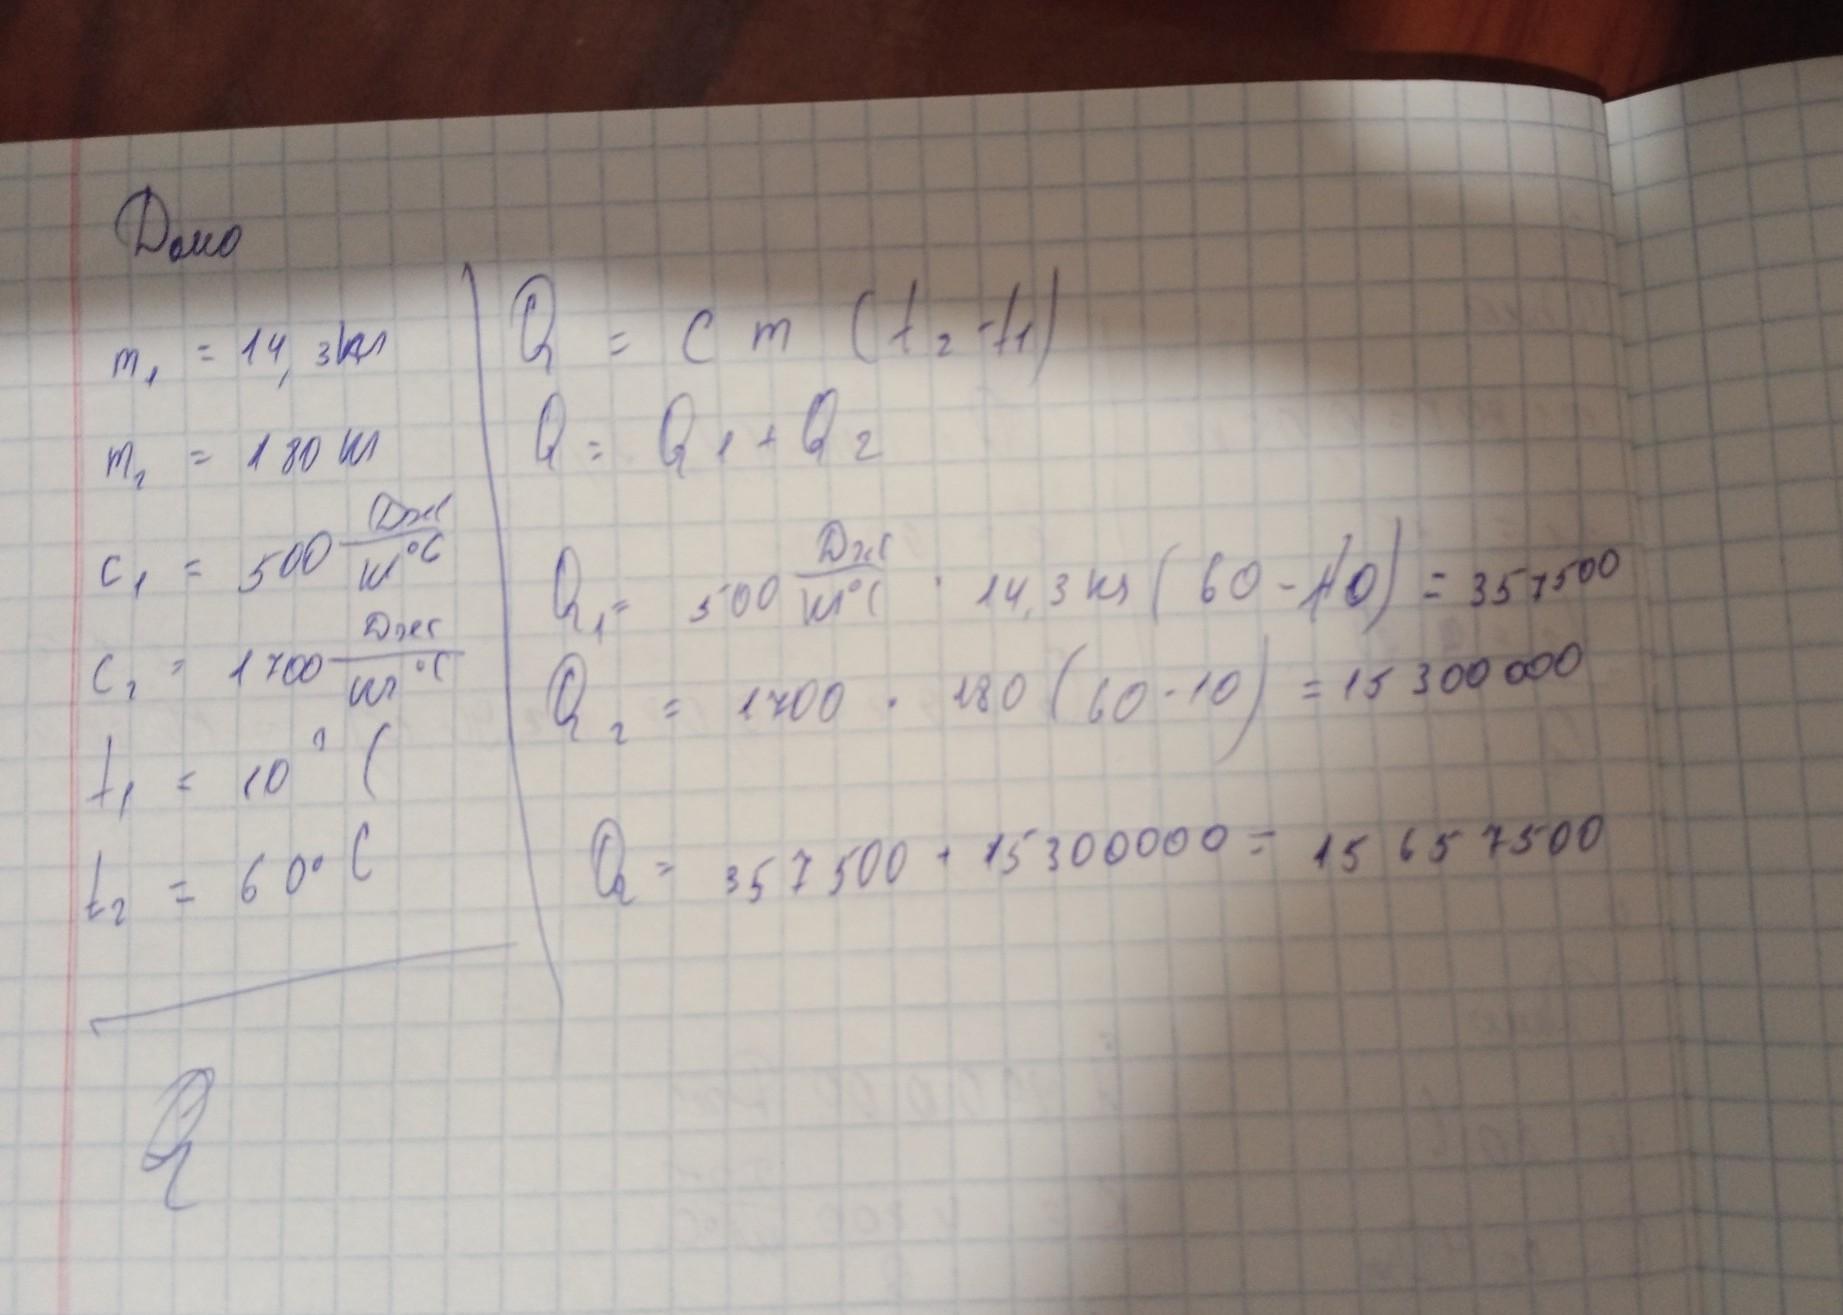 Дано
m₁ = 14,3 кг
m₂ = 180 кг
c₁ = 500 Дж/кг°C
c₂ = 1700 Дж/кг°C
t₁ = 10°C
t₂ = 60°C
Q
Q = c m (t₂ - t₁)
Q = Q₁ + Q₂
Q₁ = 500 Дж/кг°C · 14,3 кг (60 - 10) = 357500
Q₂ = 1700 · 180 (60 - 10) = 15 300 000
Q = 357500 + 15300000 = 15 657500